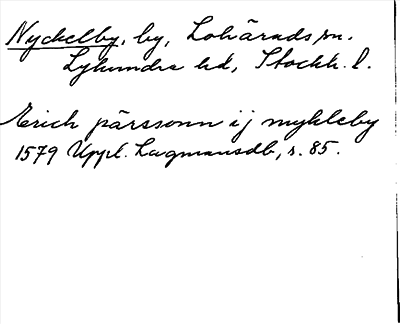 Nyckelby, by, Lohärads sn.
Lyhundra hd, Stockh. l.
Erich pärssonn ij mykleby
1579 Uppl. Lagmansdb, s. 85.